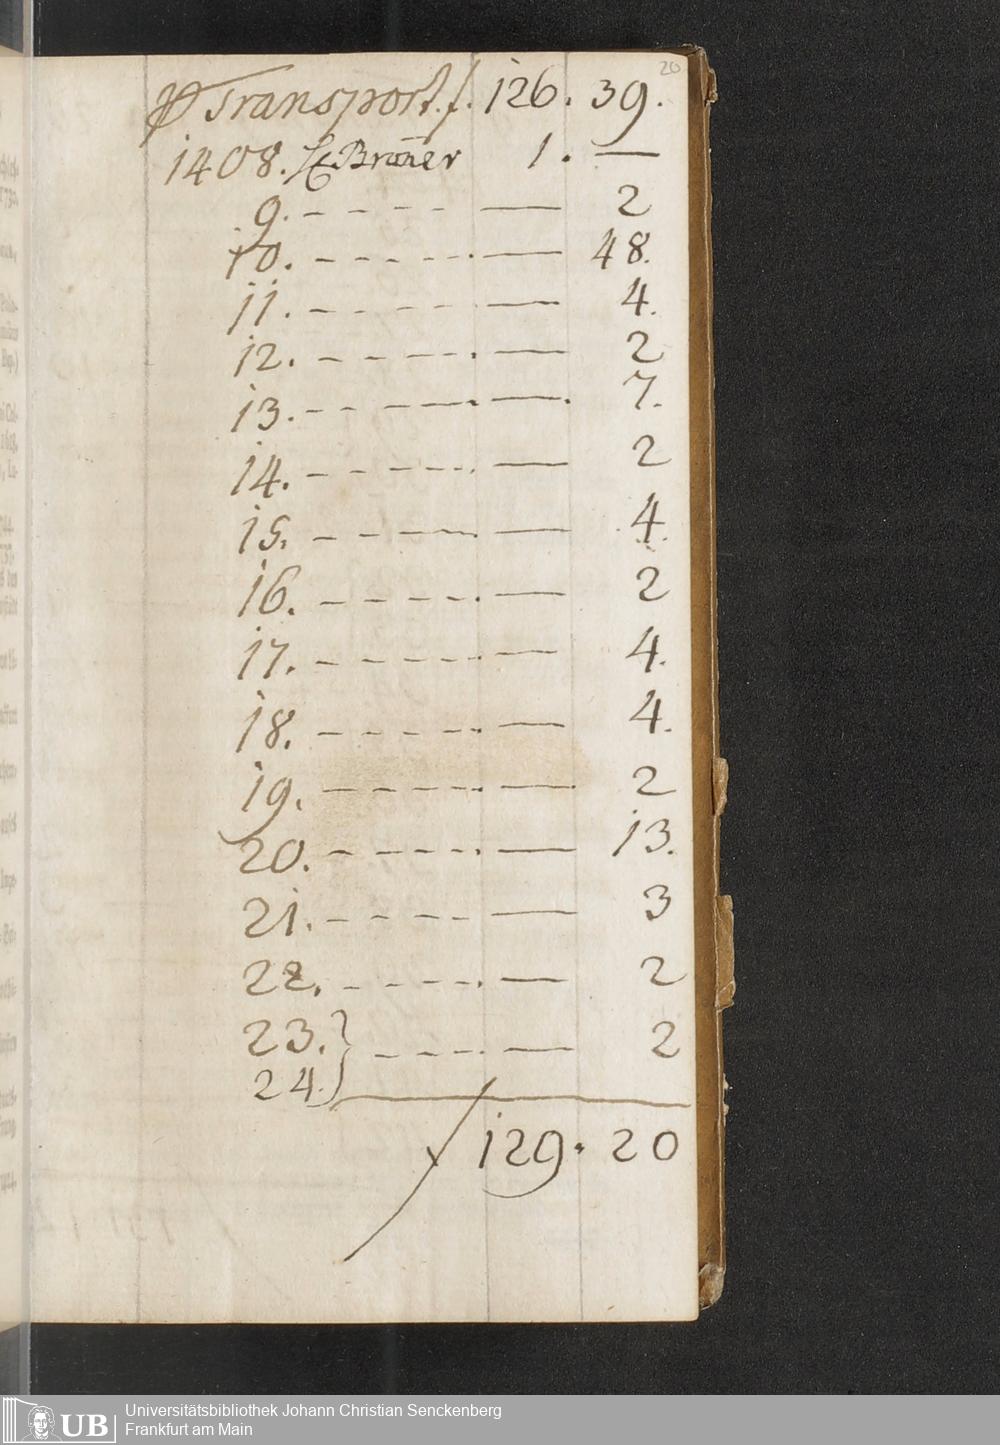 20
Transport. f. 126. 39.
1408. H. Broñer 1. —
9. - - - - — 2
10. - - - - - — 48.
11. - - - - — 4.
12. - - - - — 2
13. - - - - — 7.
14. - - - - - — 2
15. - - - - — 4.
16. - - - - - — 2
17. - - - - - — 4.
18. - - - - - — 4.
19. - - - - - — 2
20. - - - - - — 13.
21. - - - - — 3
22. - - - - - — 2
23. } - - - - — 2
24.
f 129. 20
UB
Universitätsbibliothek Johann Christian Senckenberg
Frankfurt am Main